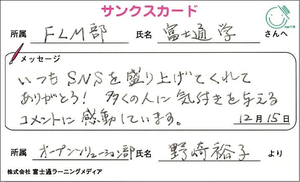 サンクスカード
所属 FLM部 氏名 富士通 学 さんへ
メッセージ
いつもSNSを盛り上げてくれて
ありがとう! 多くの人に気付きを与える
コメントに感動しています。
12月15日
所属 オープンソリューション部 氏名 野崎裕子 より
株式会社 富士通ラーニングメディア